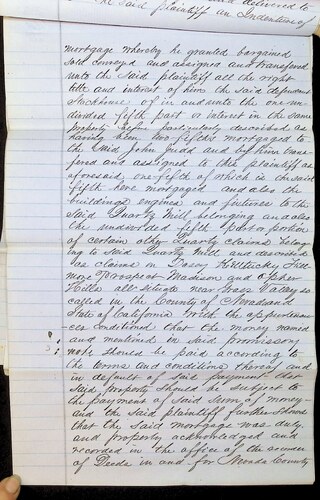 the said plaintiff an Indenture of
mortgage whereby he granted bargained
sold conveyed and assigned and transfered
unto the said plaintiff all the right
title and interest of him the said defendant
Stockhouse of in and unto the one un-
divided fifth part or interest in the same
property before particularly described as
having been
the said John Judd and by him trans-
fered and assigned to this plaintiff as
aforesaid one fifth of which is the said
fifth here mortgaged and also the
buildings engines and fixtures to the
said Quartz Mill belonging and also
the undivided fifth part or portion
of certain other Quartz claims belong-
ing to said Quartz Mill and described
as claims on Kentucky Hill
Prospect Madison and
Hills all situate near Grass Valley so
called in the County of Nevada and
State of California with the appurtenan-
ces conditioned that the money named
and mentioned in said promissory
note should be paid according to
the terms and conditions thereof and
in default of said payment that
said property should be subject to
the payment of said sum of money
and the said plaintiff further shows
that the said mortgage was duly
and properly acknowledged and
recorded in the office of the recorder
of Deeds in and for Nevada County